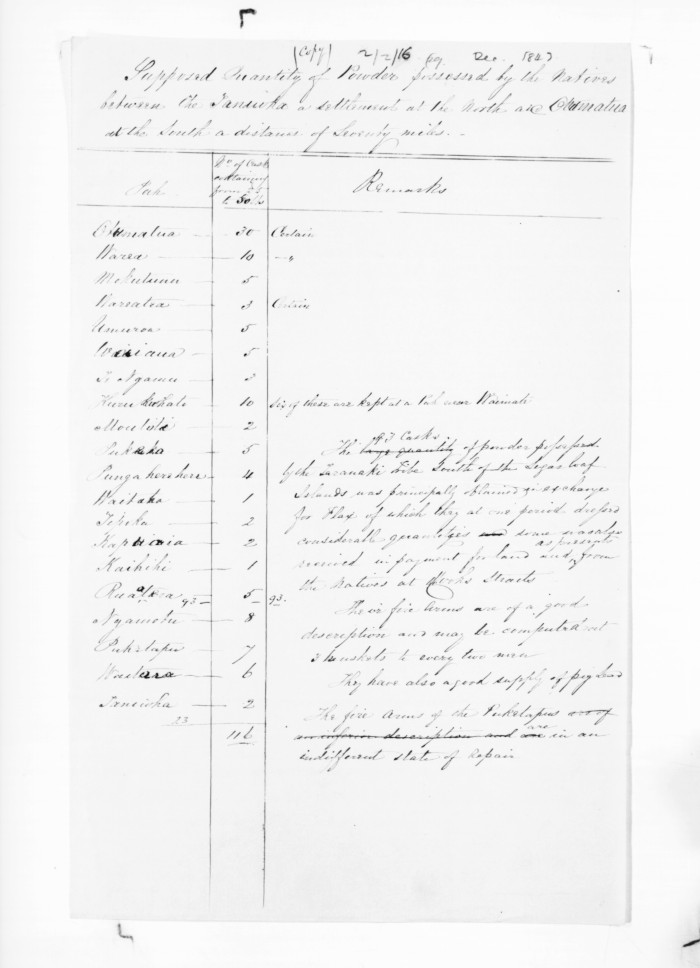 (Copy) 2/2/16 Dec. 1847
Supposed Quantity of Powder possessed by the Natives
between the Taniwha a settlement at the North and Okumatua
at the South a distance of Seventy miles. —
Pah No. of Casks containing from 25 to 50 lbs Remarks
Okumatua — 30 Certain
Warea — 10 — "
5
3 Certain
Umuroa — 5
5
Te Ngamu — 3
10 six of these are kept at a Pah near Waimati
Moutoti — 2
5
Punga herehere — 4
Waitaha — 1
Tipoka — 2
2
Kaihihi — 1
93 — 5 93.
Ngamotu — 8
Puketapu — 7
Waitara — 6
Taniwha — 2
23
116
The 93 Casks large quantity of powder possessed
by the Taranaki Tribe South of the Sugar loaf
Islands was principally obtained in exchange
for Flax of which they at one period dressed
considerable quantities and some was also
received in payment for land and as presents from
the Natives at Cooks Straits
Their fire arms are of a good
description and may be computed at
3 muskets to every two men
They have also a good supply of pig lead
The fire arms of the Puketapus are of
an inferior description and are are in an
indifferent state of repair